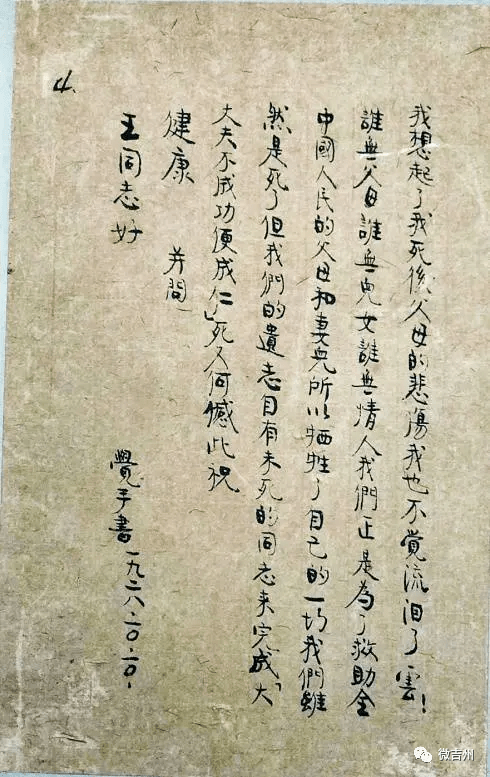 4.
我想起了我死後父母的悲傷我也不覚流泪了雲!
誰無父母誰無皃女誰無情人我們正是為了救助全
中國人民的父母和妻皃所以牺牲了自己的一切我們雖
然是死了但我們的遺志自有未死的同志来完成「大
大夫不成功便成仁」死又何憾此祝
健康 并問
王同志好
覺手書一九二八·一〇·一〇·
微吉州